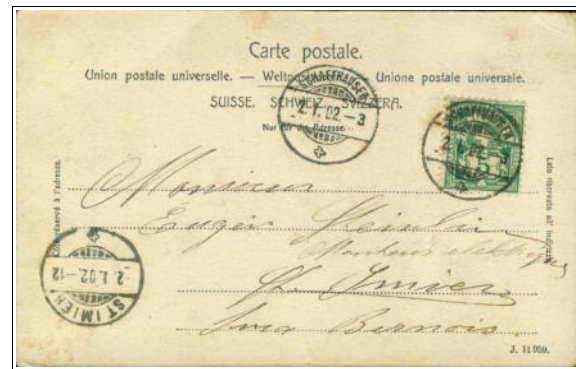 Carte postale.
Union postale universelle. — Weltpostverein — Unione postale universale.
SUISSE. SCHWEIZ. SVIZZERA.
Nur für die Adresse.
SCHAFFHAUSEN
2.I.02.–3
SCHAFFHAUSEN
Côté réservé à l'adresse.
Lato riservato all' indirizzo.
Monsieur
Eugèn
Monteur électrique
St. Imier
Jura Bernois.
2.I.02.–12
ST IMIER
J. 11 959.